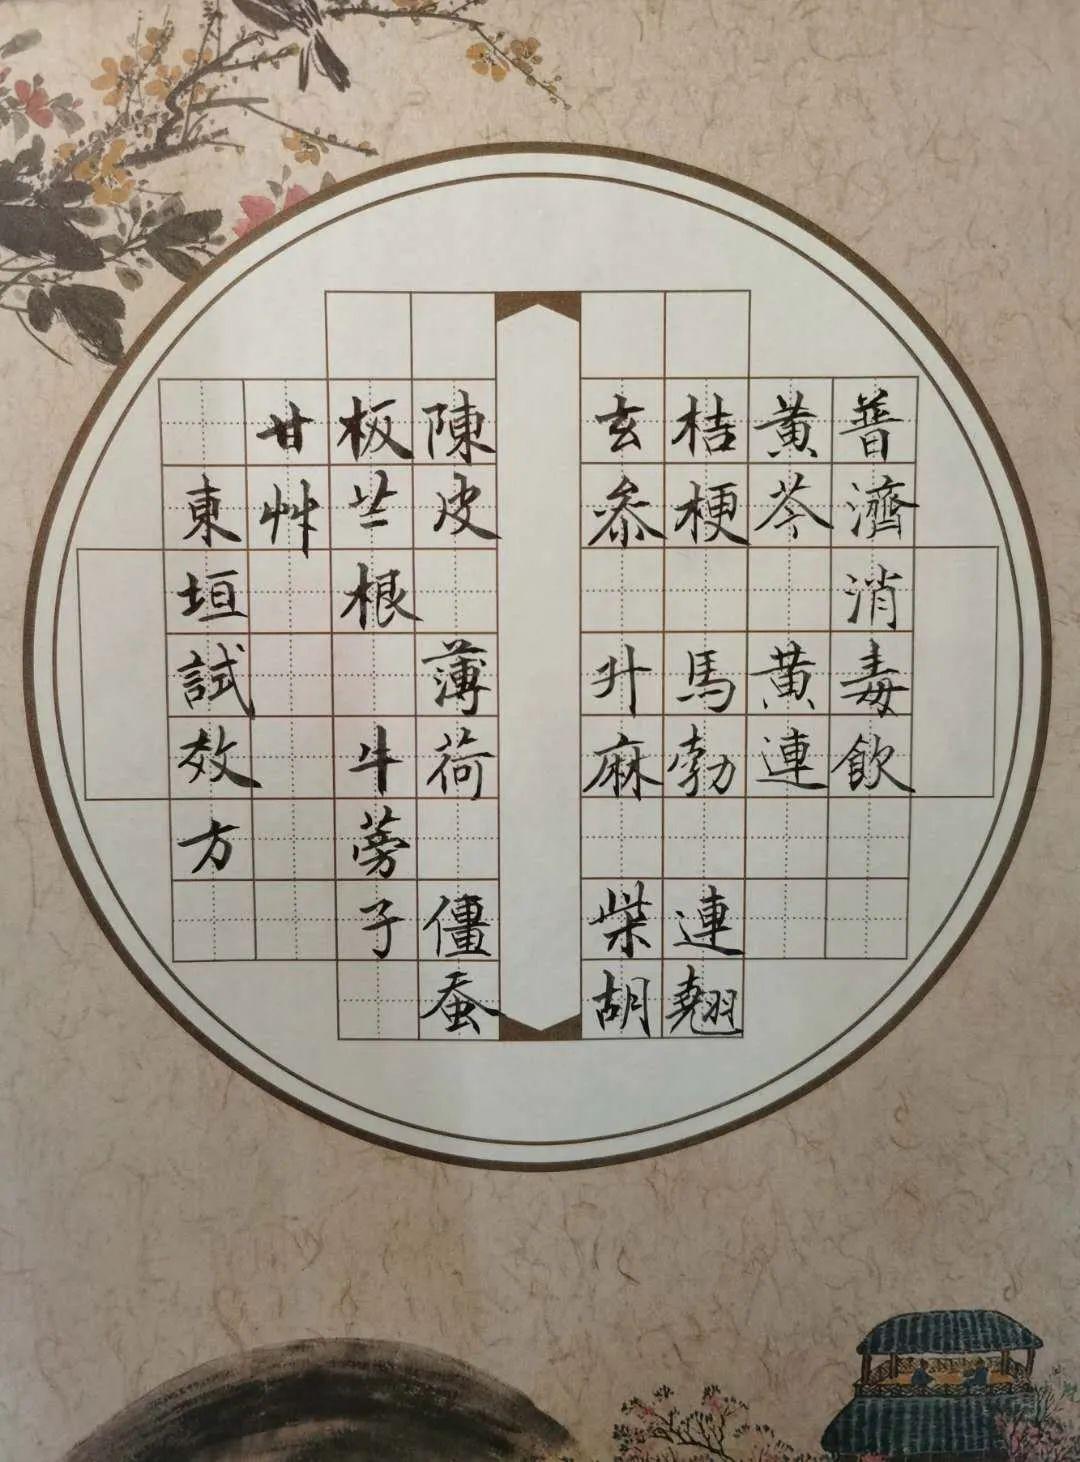 普濟消毒飲
黄芩 黄連
桔梗 馬勃 連翹
玄叅 升麻 柴胡
陳皮 薄荷 僵蚕
板兰根 牛蒡子
甘艸
東垣試效方